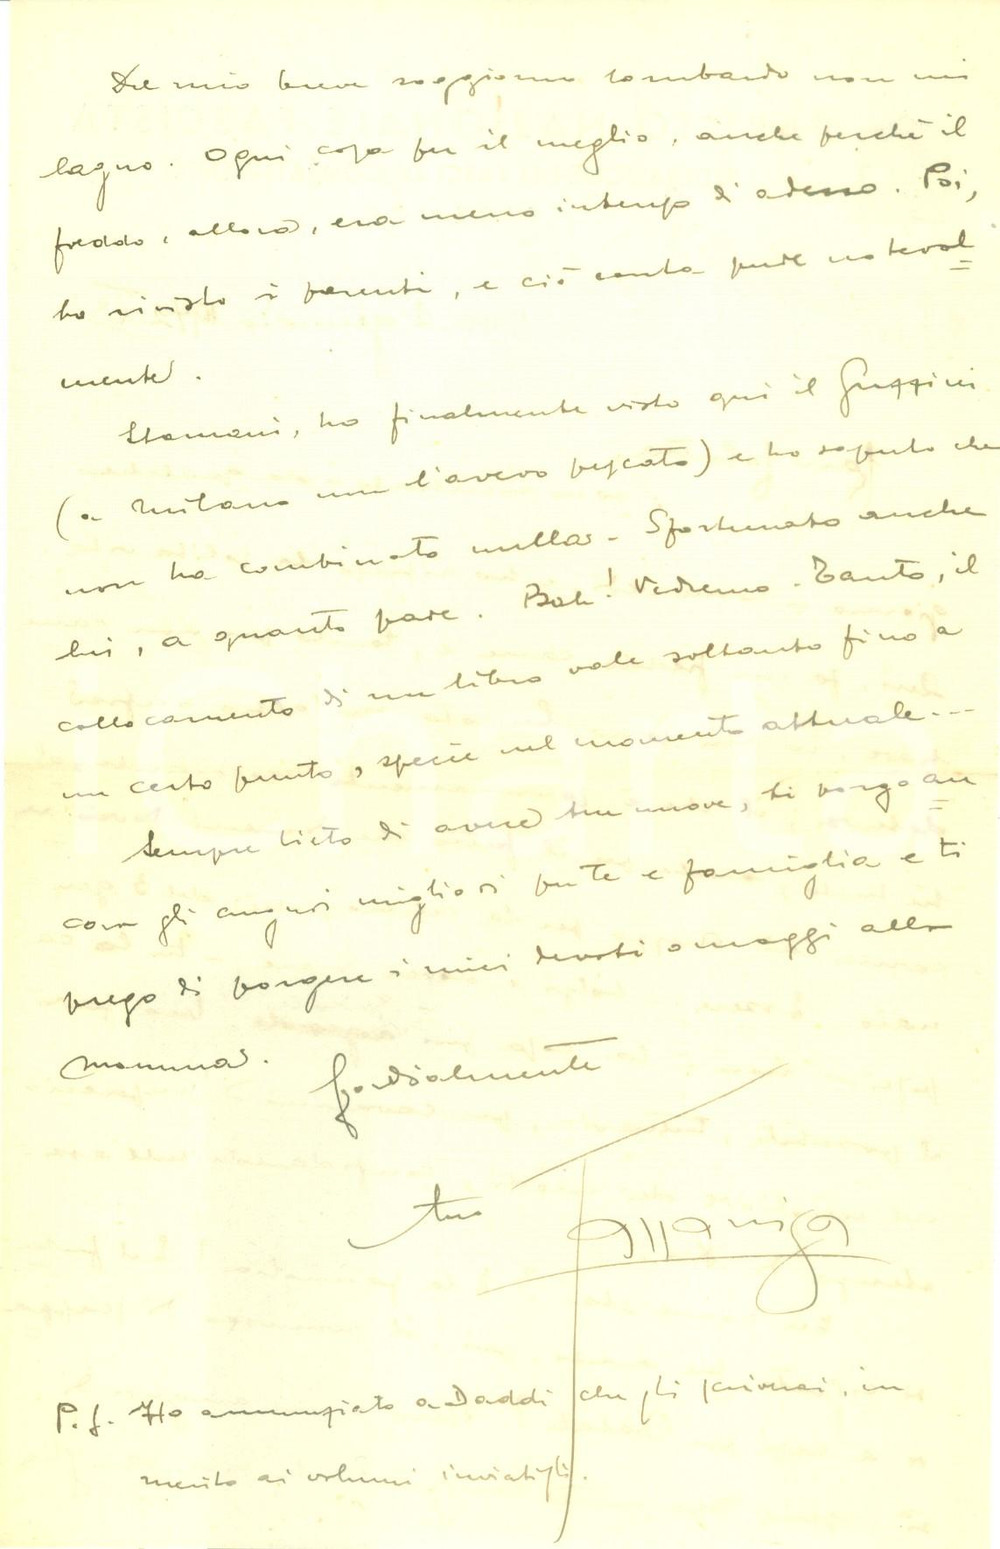 Del mio breve soggiorno lombardo non mi
lagno. Ogni cosa per il meglio, anche perché il
freddo, allora, era meno intenso di adesso. Poi,
ho rivisto i parenti, e ciò conta pure notevol=
mente.
Stamani, ho finalmente visto qui il Guzzini
(a Milano non l'avevo pescato) e ho saputo che
non ha combinato nulla. Sfortunato anche
lui, a quanto pare. Bah! Vedremo. Tanto, il
collocamento di un libro vale soltanto fino a
un certo punto, specie nel momento attuale...
Sempre lieto di avere tue nuove, ti porgo an=
cora gli auguri migliori per te e famiglia e ti
prego di porgere i miei devoti omaggi alla
mamma.
Cordialmente
tuo
P.S. Ho annunziato a Daddi che gli scriverai, in
merito ai volumi inviatigli.